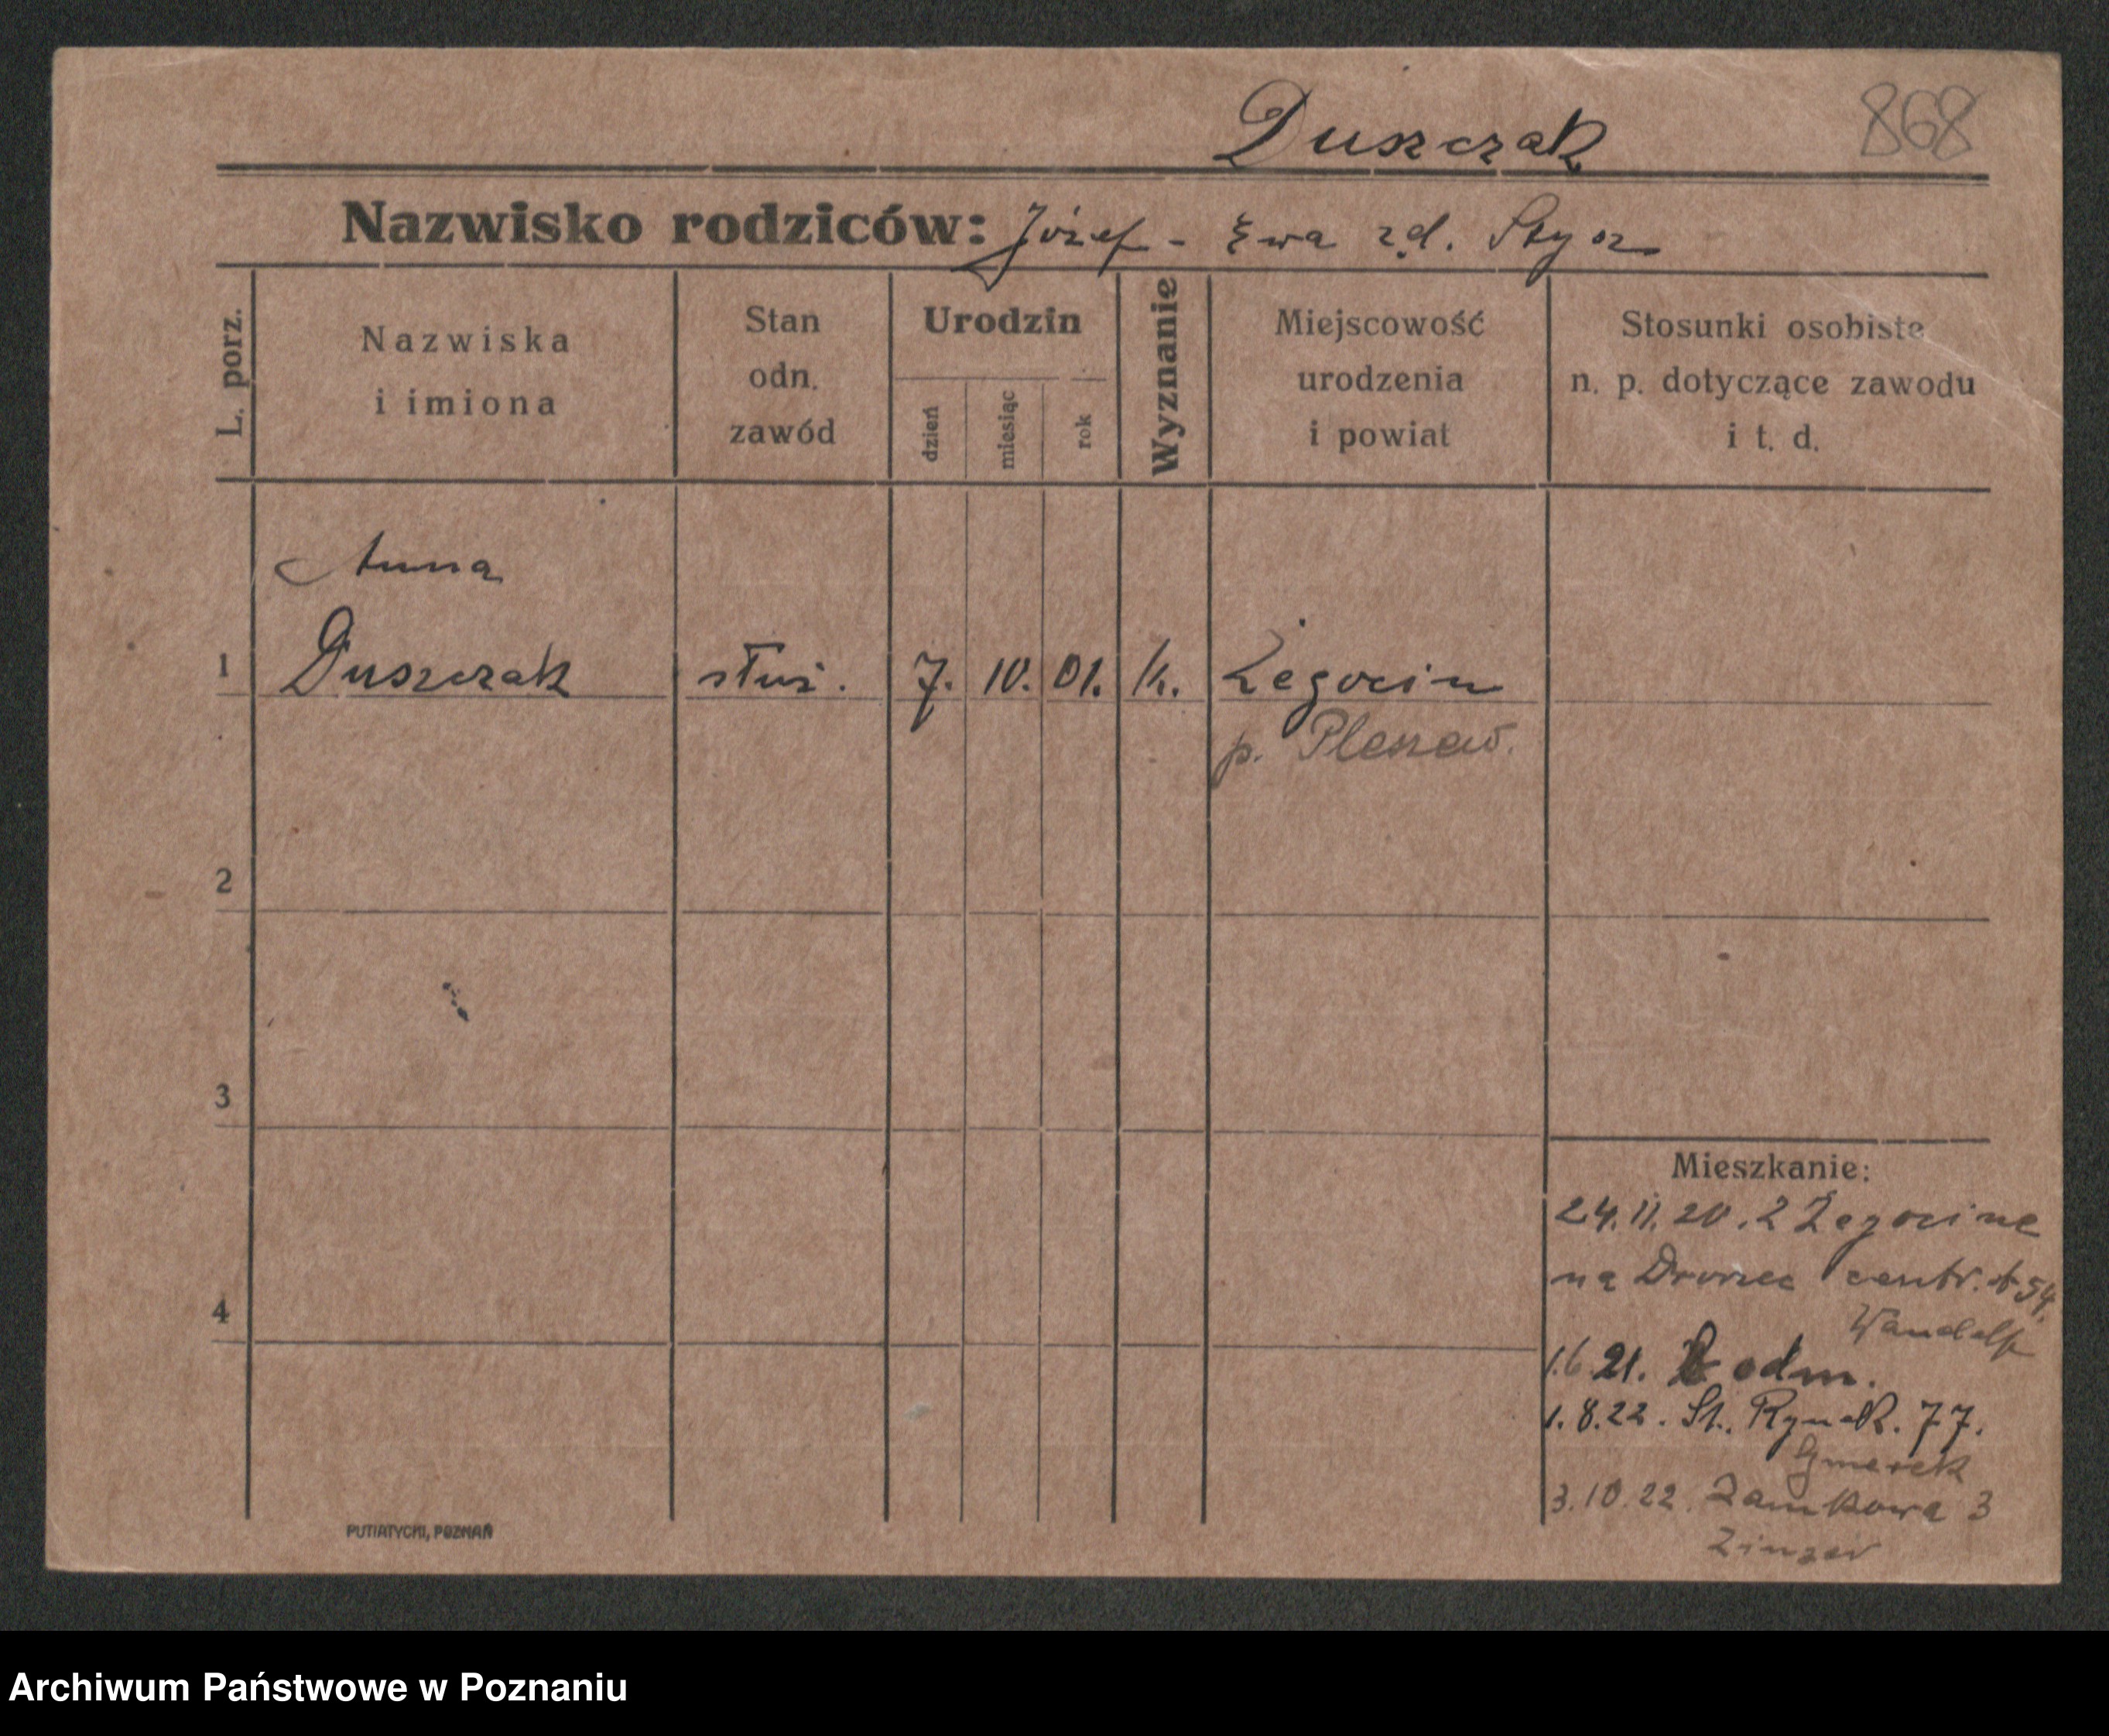 Duszczak 868
Nazwisko rodziców: Józef - Ewa zd. Stysz
L. porz.
Nazwiska
i imiona
Stan
odn.
zawód
Urodzin
dzień
miesiąc
rok
Wyznanie
Miejscowość
urodzenia
i powiat
Stosunki osobiste
n. p. dotyczące zawodu
i t. d.
Anna
1 Duszczak służ. 7. 10. 01. k. Żegocin
p. Pleszew.
2
3
4
Mieszkanie:
24.11.20. z Żegocina
na Dworzec centr. 54.
1.6 21. odm.
1.8.22. St. Rynek. 77.
3.10.22. Zamkowa 3
PUTIATYCKI, POZNAŃ
Archiwum Państwowe w Poznaniu